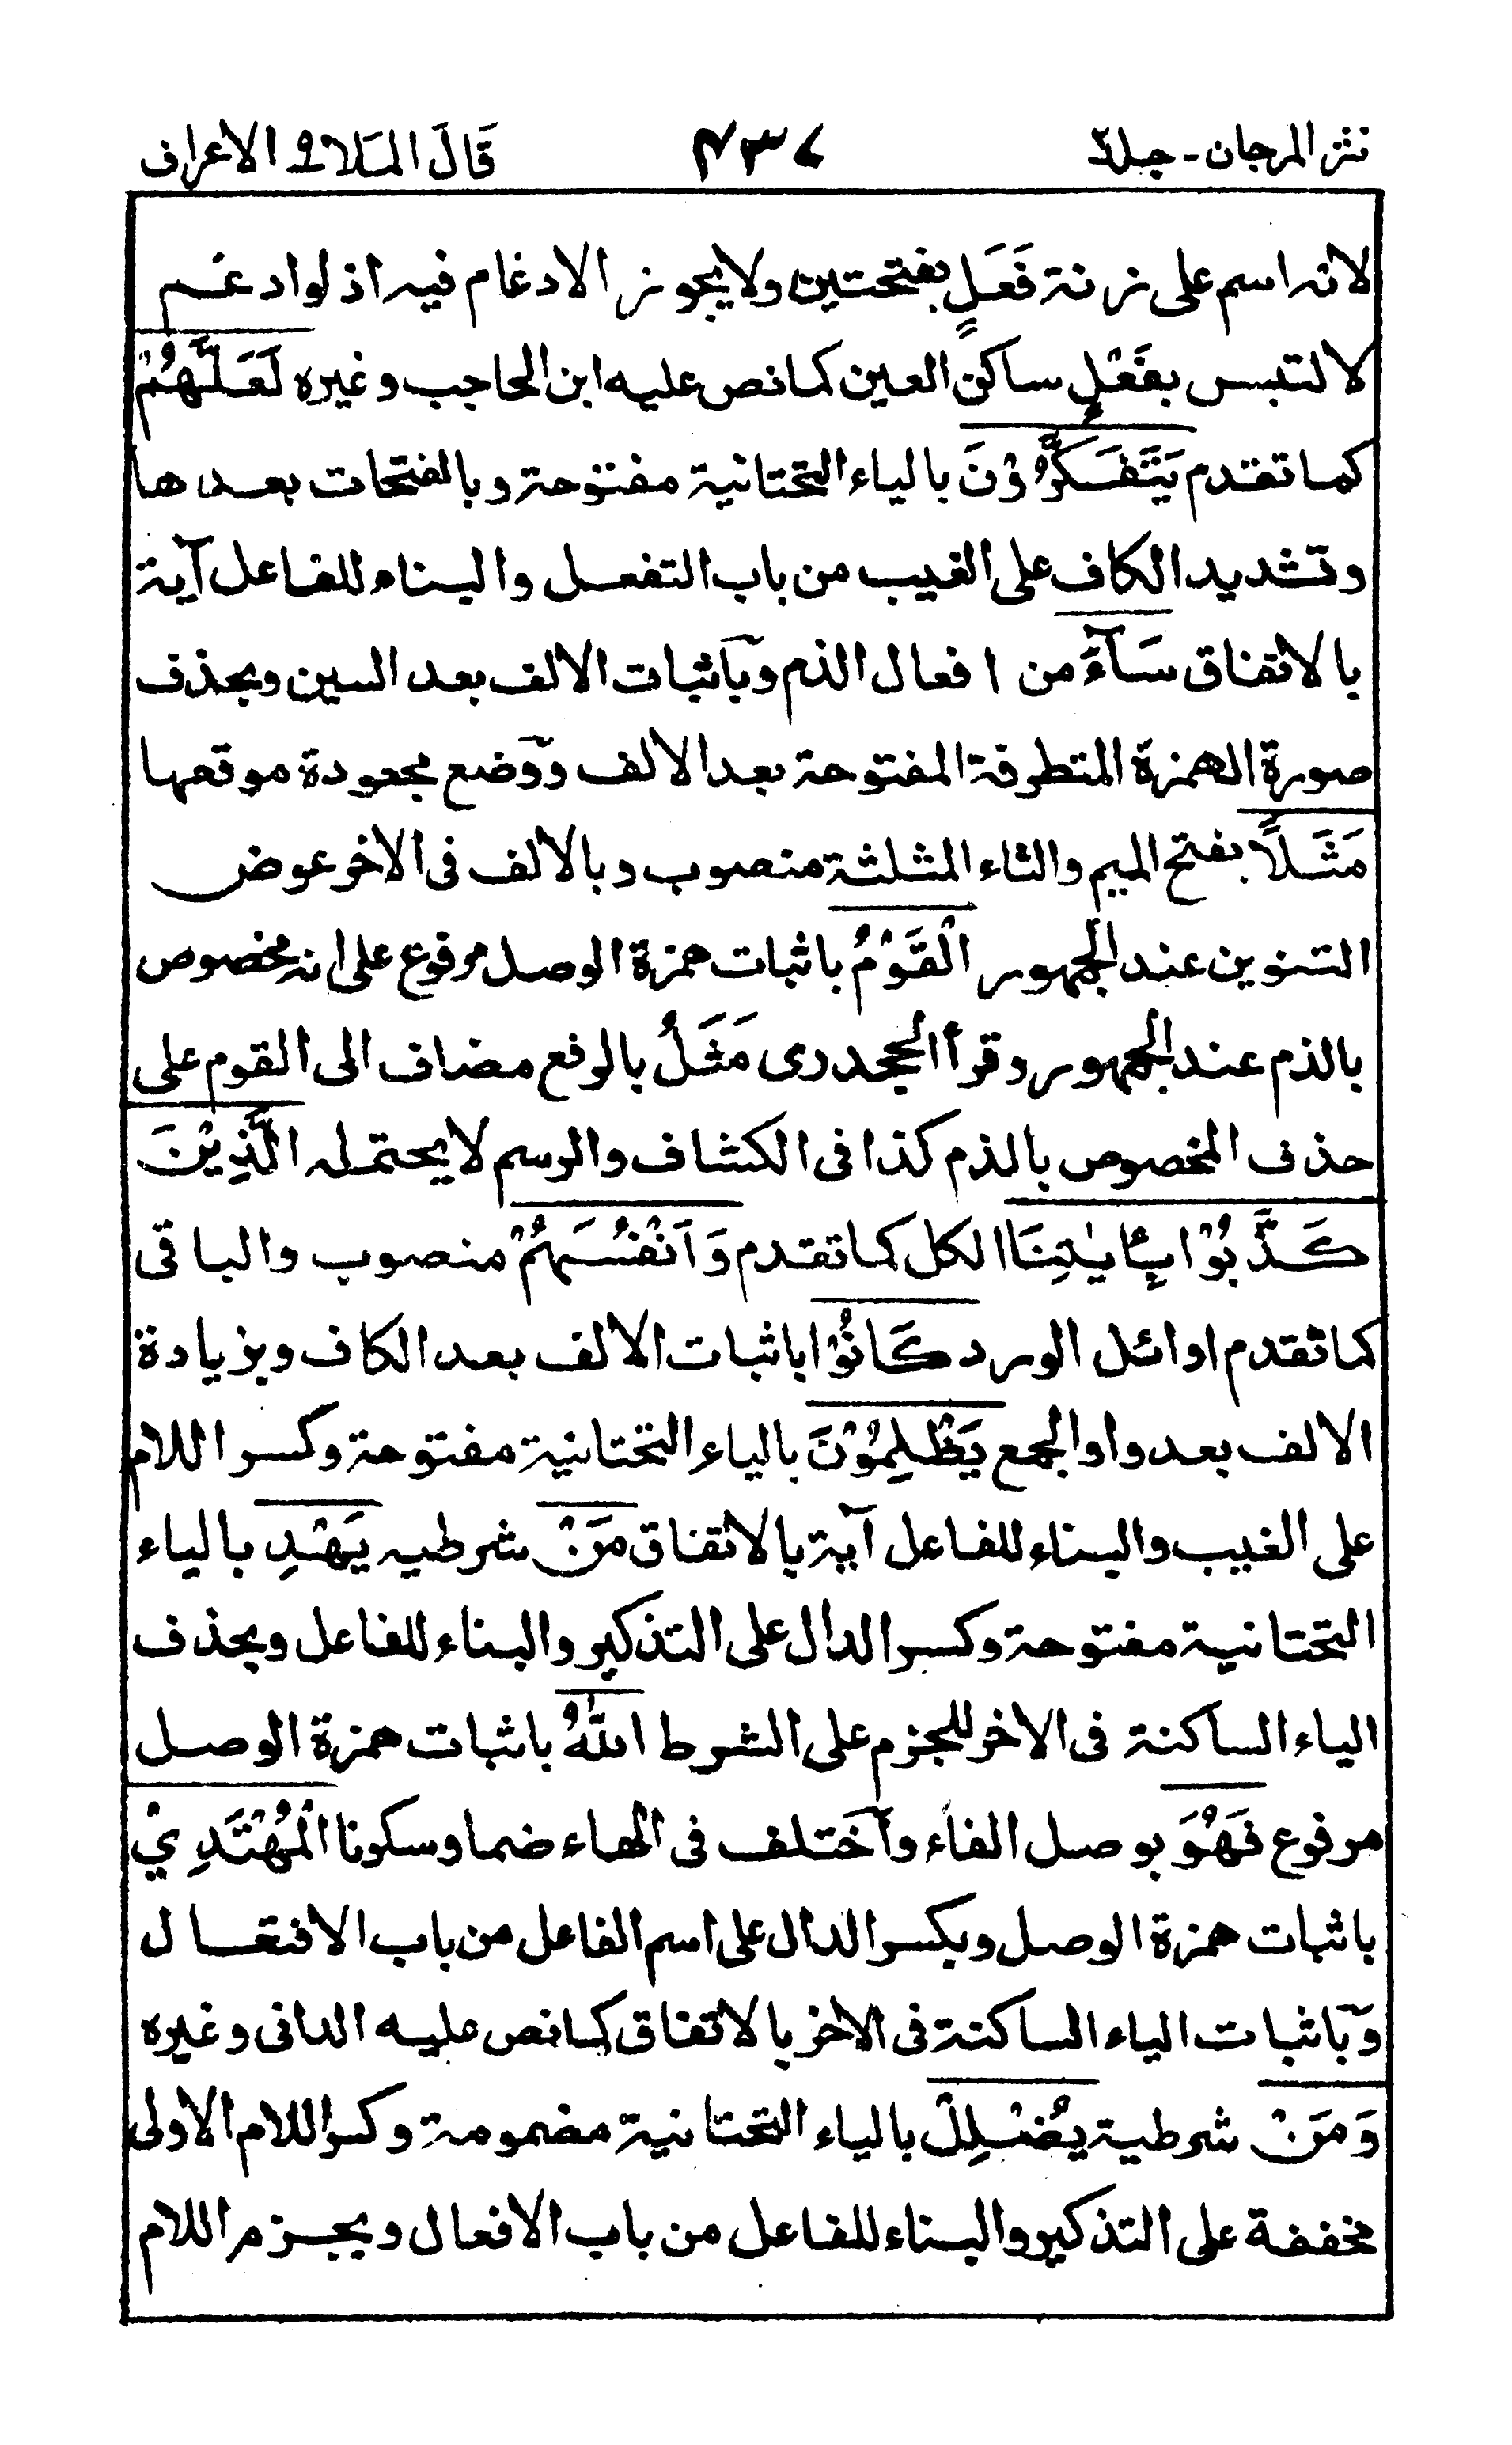 نثر المرجان - جلد٢ ٤٣٧ قَالَ المَلا ٩ الاعراف
لانه اسم على زنة فَعَلٍ بفتحتين ولا يجوز الادغام فيه اذ لو ادغم
لالتبس بفَعْلٍ ساكن العين كما نص عليه ابن الحاجب وغيره لَعَلَّهُمْ
كما تقدم يَتَفَكَّرُوْنَ بالياء التحتانية مفتوحة وبالفتحات بعدها
وتشديد الكاف على الغيب من باب التفعل والبناء للفاعل آية
بالاتفاق سَآءَ من افعال الذم وبآثبات الالف بعد السين وبحذف
صورة الهمزة المتطرفة المفتوحة بعد الالف ووضع مجعودة موقعها
مَثَلًا بفتح الميم والثاء المثلثة منصوب وبالالف فى الاخر عوض
التنوين عند الجمهور الْقَوْمُ باثبات همزة الوصل مرفوع على انه مخصوص
بالذم عند الجمهور وقرأ الجحدرى مَثَلُ بالرفع مضاف الى القوم على
حذف المخصوص بالذم كذا فى الكشاف والرسم لا يحتمله الَّذِيْنَ
كَذَّبُوْا بِئَايٰتِنَا الكل كما تقدم وَاَنْفُسَهُمْ منصوب والباقى
كما تقدم اوائل الورد كَانُوْا باثبات الالف بعد الكاف وبزيادة
الالف بعد واو الجمع يَظْلِمُوْنَ بالياء التحتانية مفتوحة وكسر اللام
على الغيب والبناء للفاعل آية بالاتفاق مَنْ شرطيه يَهْدِ بالياء
التحتانية مفتوحة وكسر الدال على التذكير والبناء للفاعل وبحذف
الياء الساكنة فى الاخر للجزم على الشرط اللّٰهُ باثبات همزة الوصل
مرفوع فَهُوَ بوصل الفاء وآختلف فى الهاء ضما وسكونا الْمُهْتَدِيْ
باثبات همزة الوصل وبكسر الدال على اسم الفاعل من باب الافتعال
وبآثبات الياء الساكنة فى الاخر بالاتفاق كما نص عليه الدانى وغيره
وَمَنْ شرطية يُضْلِلْ بالياء التحتانية مضمومة وكسر اللام الاولى
مخففة على التذكير والبناء للفاعل من باب الافعال وبجزم اللام